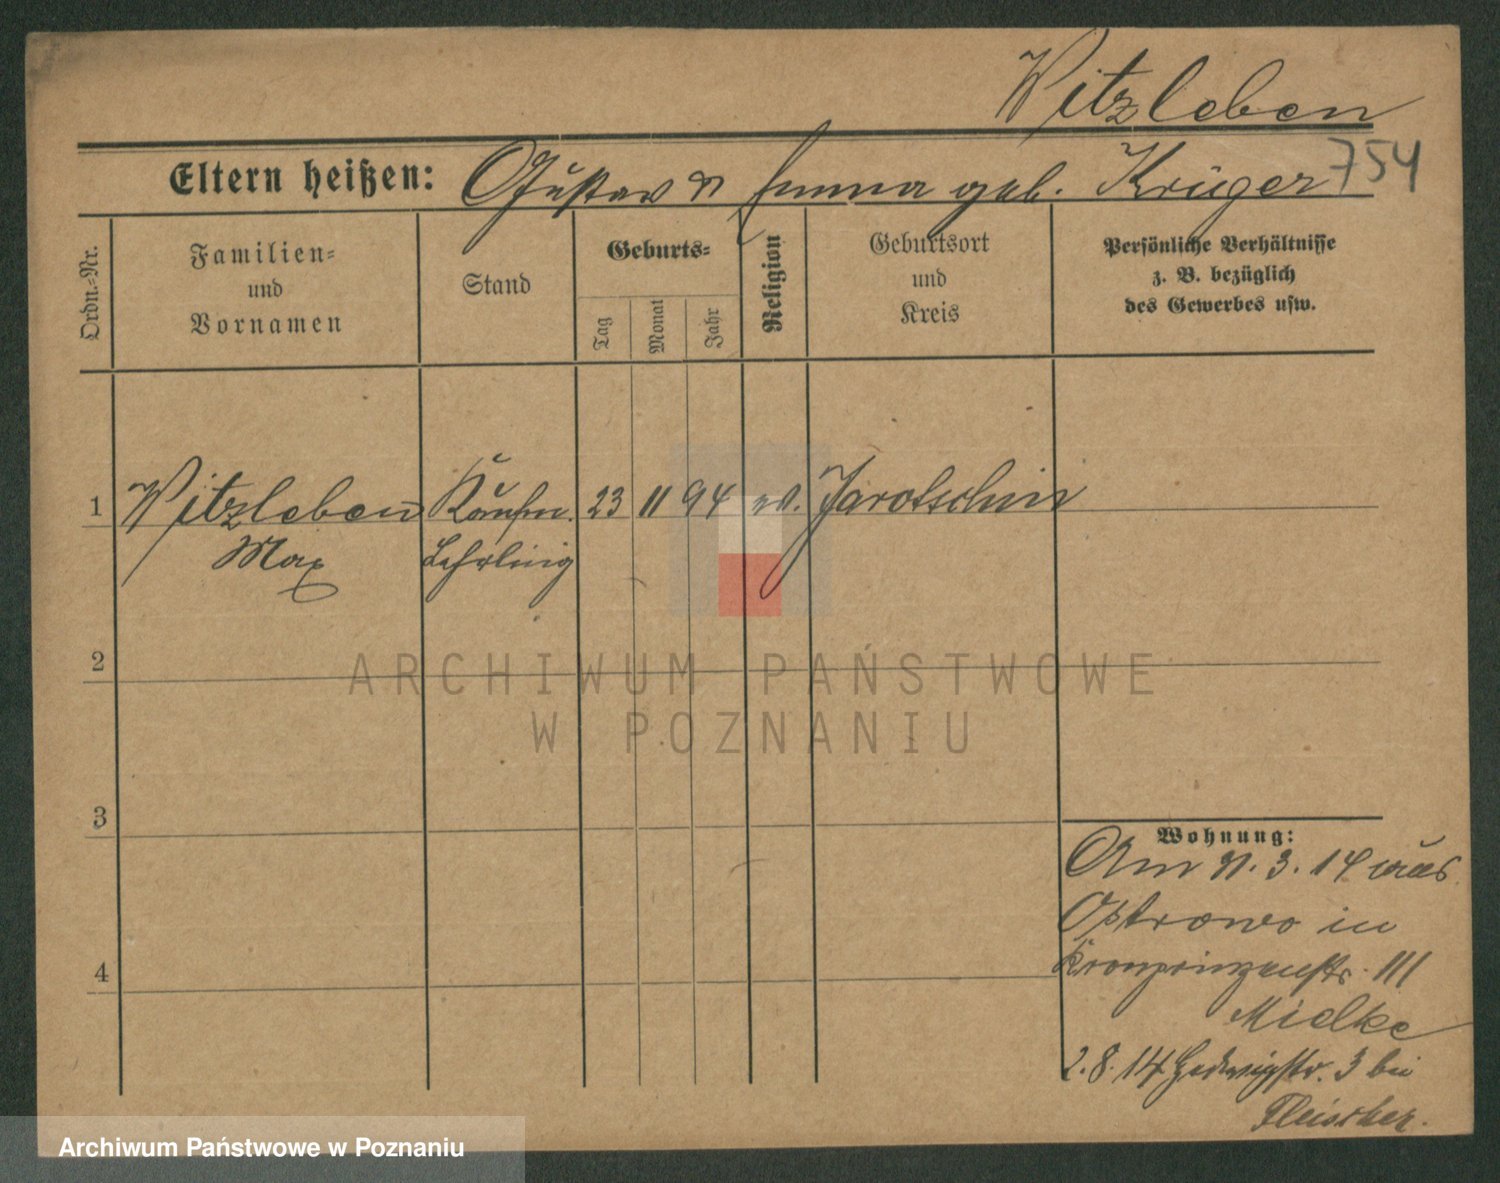 Witzleben
754
Eltern heißen: Gustav u Emma geb. Krüger
Ordn.-Nr.
Familien-
und
Vornamen
Stand
Geburts-
Tag
Monat
Jahr
Religion
Geburtsort
und
Kreis
Persönliche Verhältnisse
z. B. bezüglich
des Gewerbes usw.
1 Witzleben Kaufm. 23 11 94 ev. Jarotschin
Max Lehrling
2
ARCHIWUM PAŃSTWOWE
W POZNANIU
3
Wohnung:
Am 3. 14 aus
Ostrowo in
4
Kronprinzenstr. 111
Mielke
2. 8. 14 Hedwigstr. 3 bei
Fleischer.
Archiwum Państwowe w Poznaniu